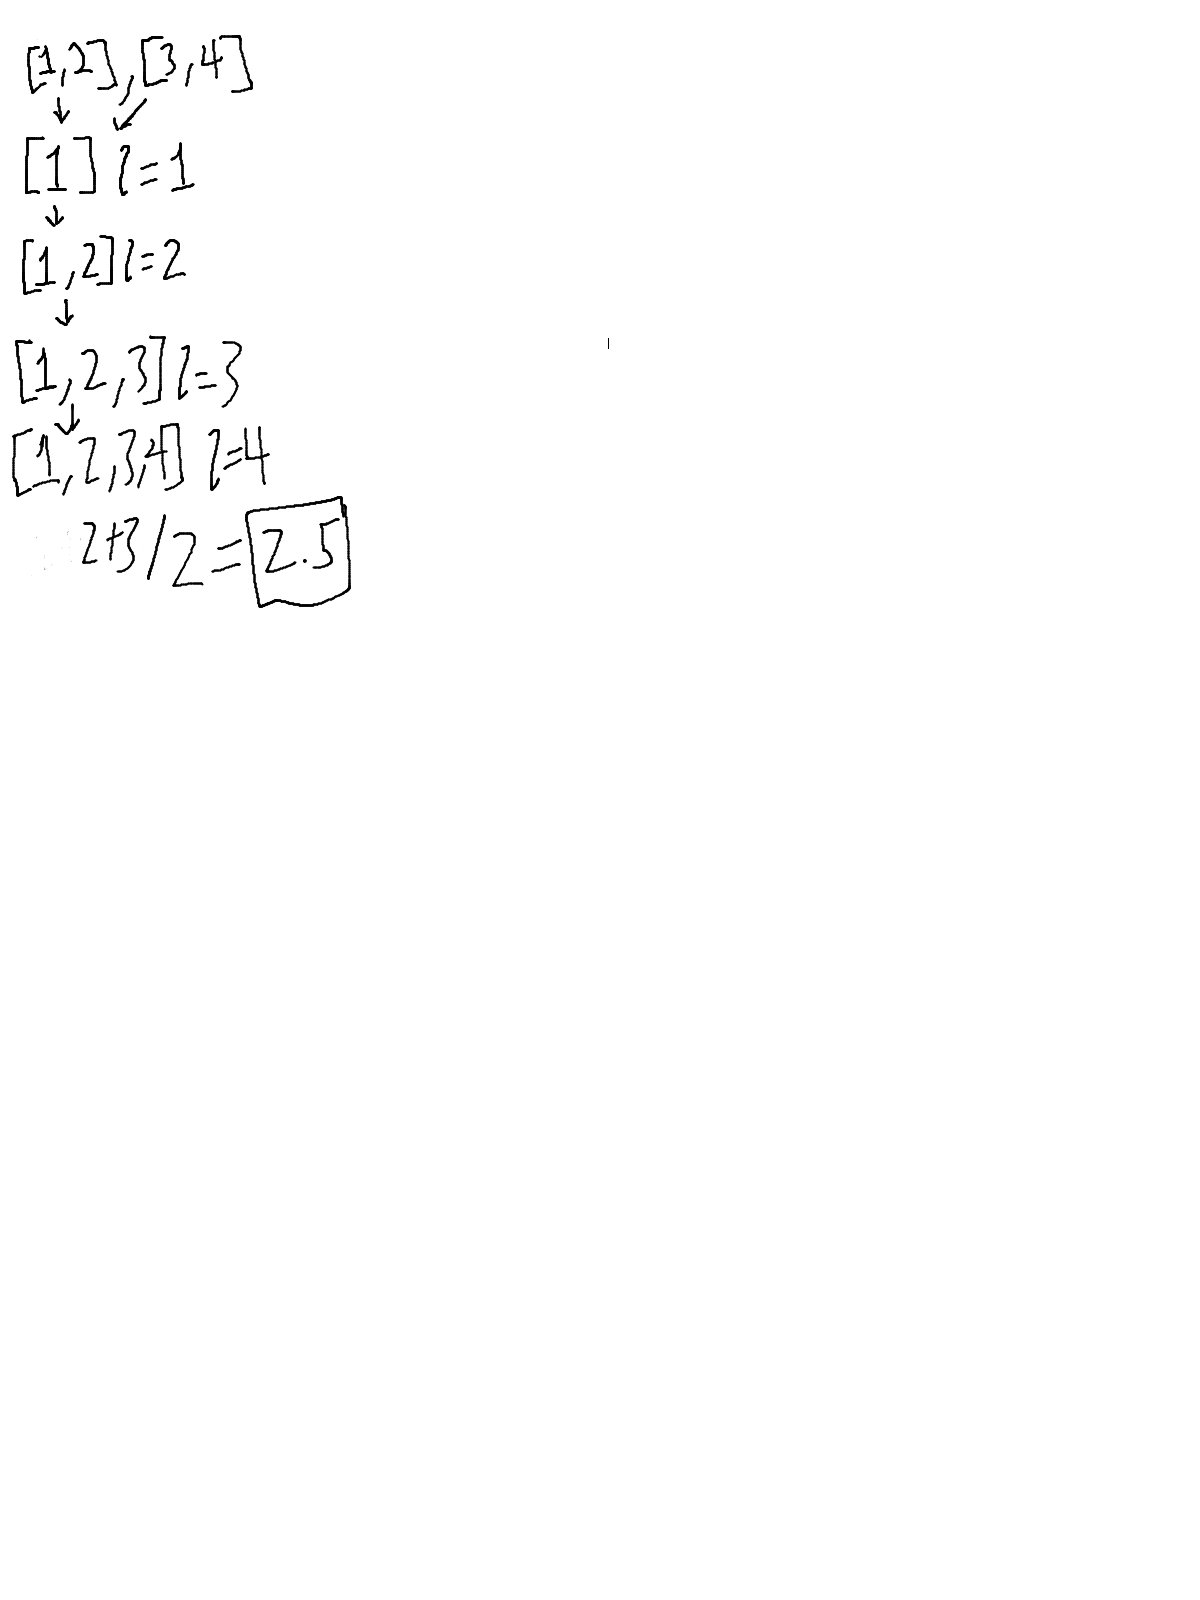 [1,2],[3,4]
[1] l=1
[1,2] l=2
[1,2,3] l=3
[1,2,3,4] l=4
2+3/2=2.5